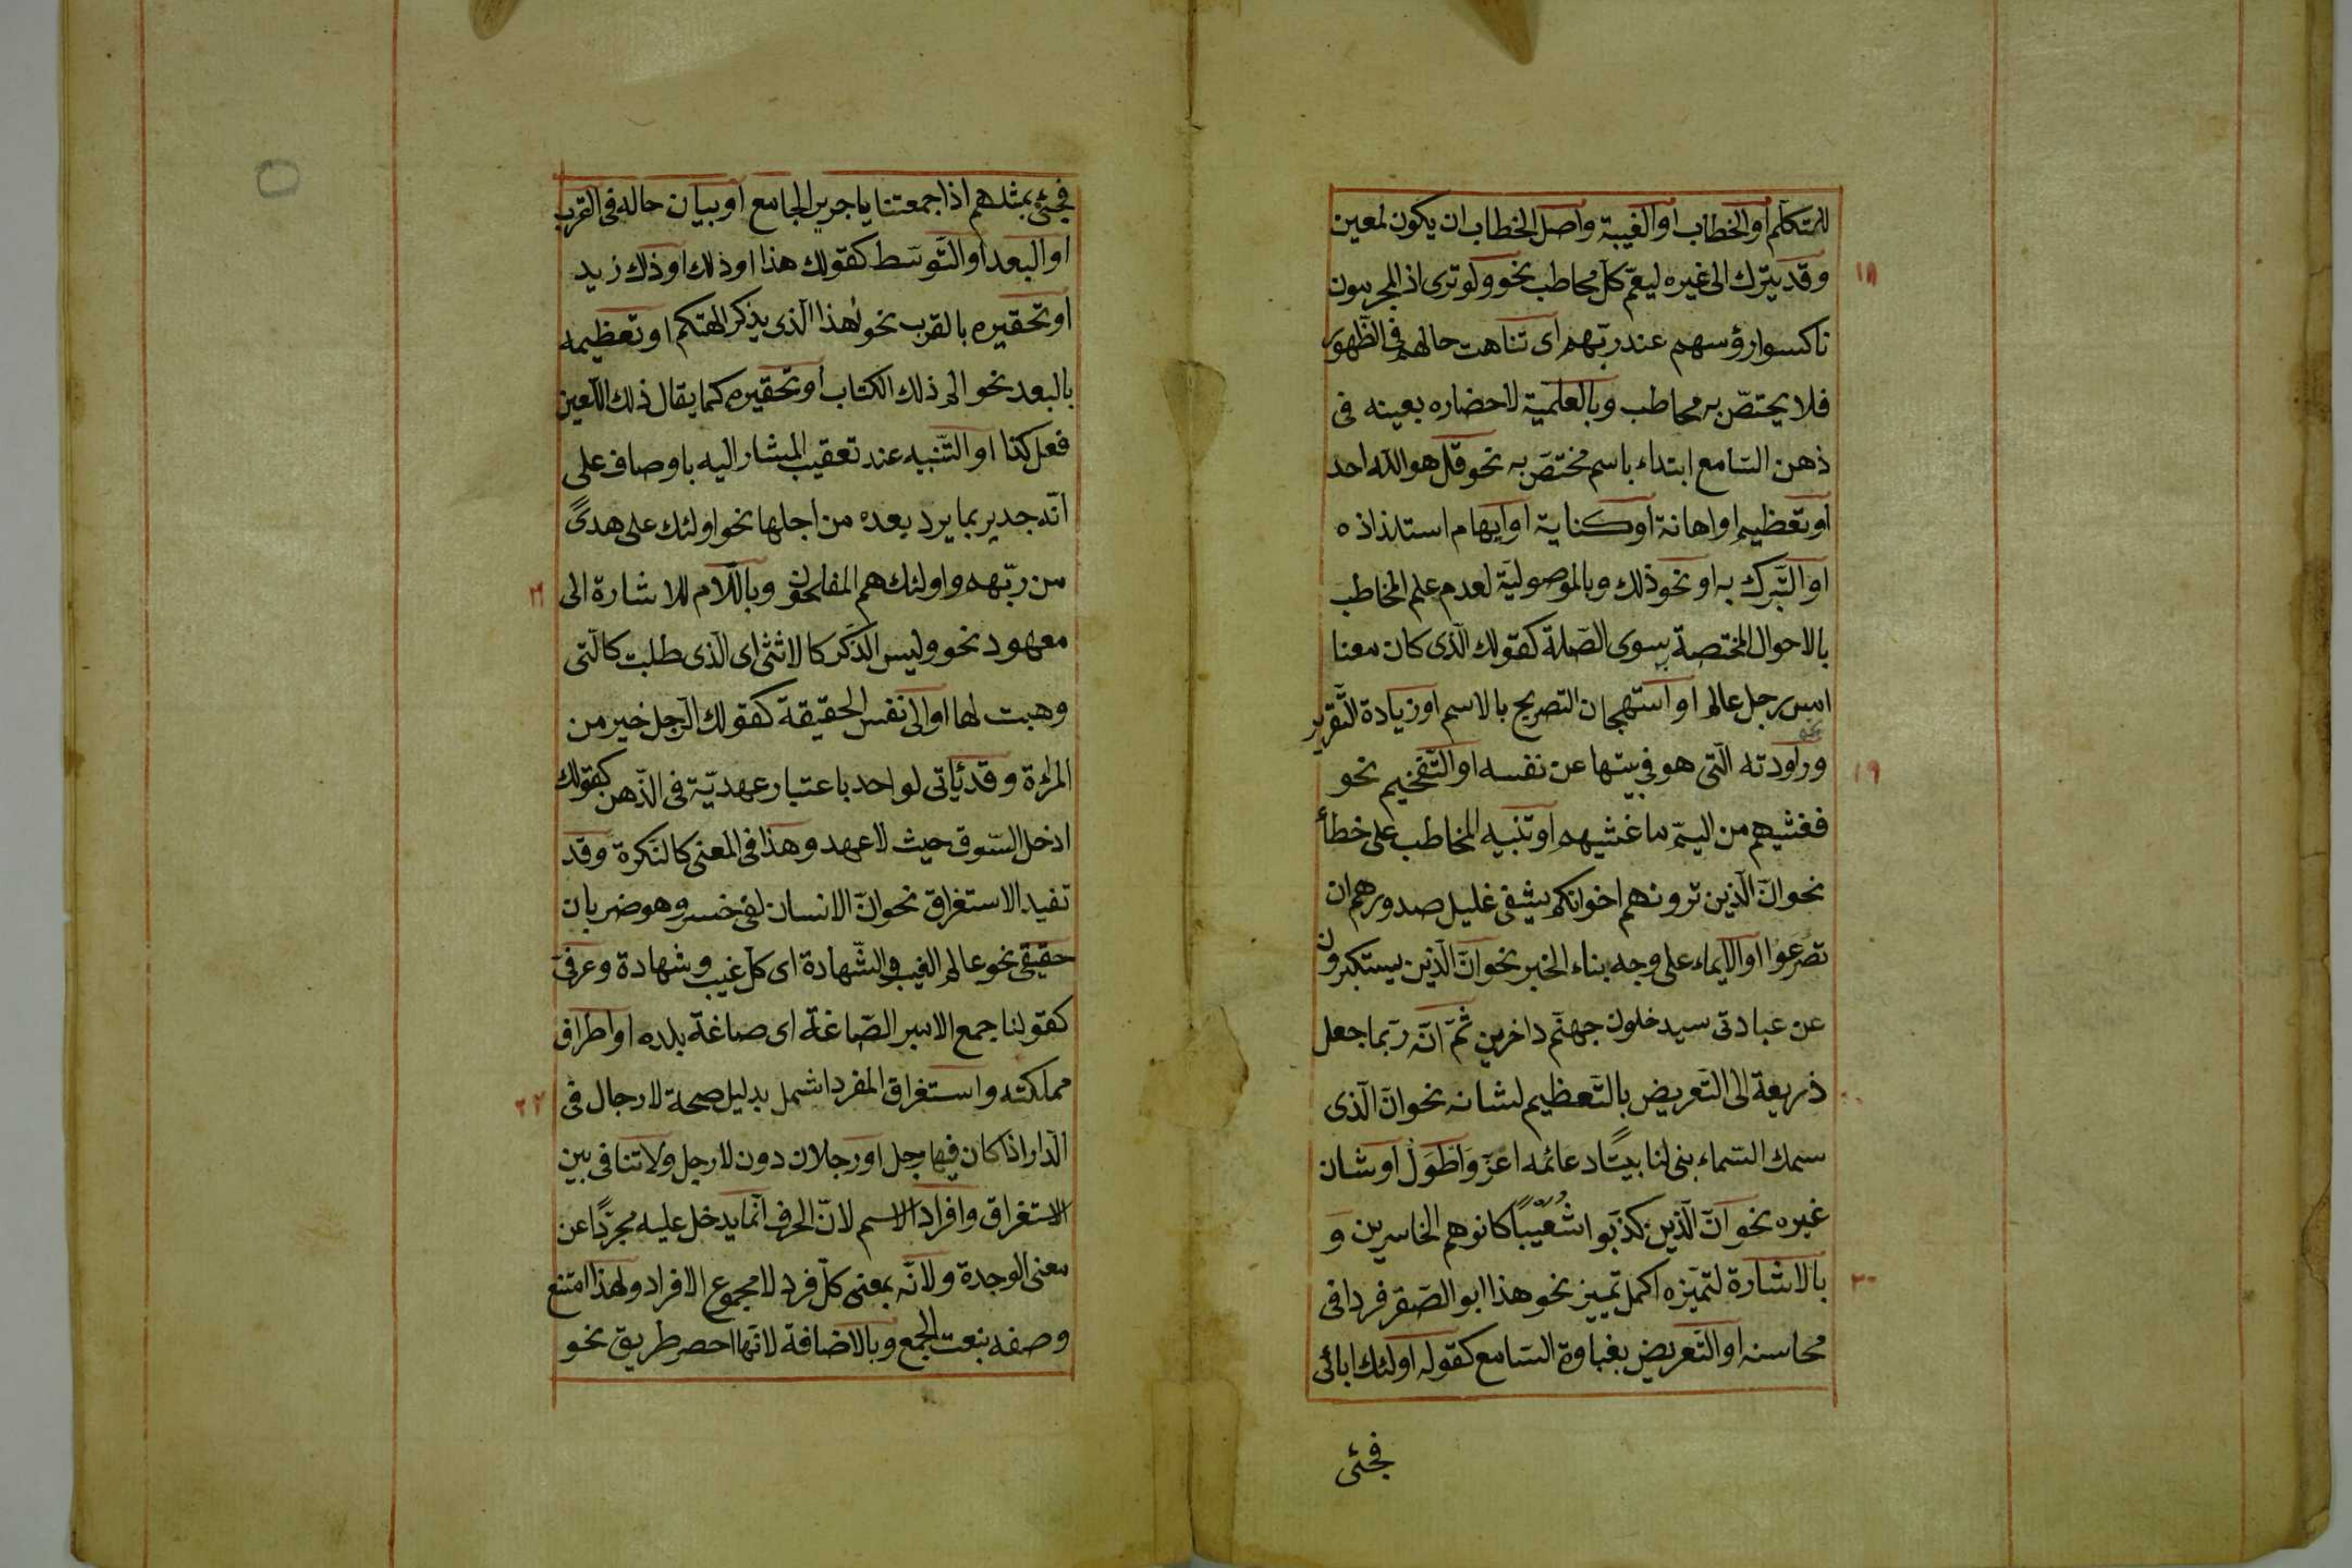 للمتكلم او الخطاب او الغيبة واصل الخطاب ان يكون لمعين
وقد يترك الى غيره ليعمّ كلّ مخاطب نحو ولو ترى اذ المجرمون
ناكسوا رؤسهم عند ربّهم اى تناهت حالهم فى الظّهور
فلا يختصّ به مخاطب وبالعلميّة لاحضاره بعينه فى
ذهن السّامع ابتداء باسم مختصّ به نحو قل هو اللّه احد
او تعظيم او اهانة او كناية او ايهام استلذاذه
او التّبرك به او نحو ذلك وبالموصوليّة لعدم علم المخاطب
بالاحوال المختصة بسوى الصّلة كقولك الّذى كان معنا
امس رجل عالم او استهجان التصريح بالاسم او زيادة التّقرير
نحو
وراودته الّتى هو فى بيتها عن نفسه او التّفخيم نحو
فغشيهم من اليمّ ما غشيهم او تنبيه المخاطب على خطأ
نحو انّ الّذين ترونهم اخوانكم يشفى غليل صدورهم ان
تصرعوا او الايماء على وجه بناء الخبر نحو انّ الّذين يستكبرون
عن عبادتى سيدخلون جهنّم داخرين ثمّ انّه ربّما جعل
ذريعة الى التّعريض بالتّعظيم لشانه نحو انّ الّذى
سمك السّماء بنى لنا بيتًا دعائمه اعزّ وَاَطْوَلُ او شان
غيره نحو انّ الّذين كذّبوا شُعَيْبًا كانوا هم الخاسرين و
بالاشارة لتميّزه اكمل تمييز نحو هذا ابو الصّقر فردا فى
محاسنه او التّعريض بغباوة السّامع كقوله اولئك ابائى
فجئى
١٨
١٩
٢٠
فجئى بمثلهم اذا جمعتنا يا جرير الجامع او بيان حاله فى القرب
او البعد او التّوسّط كقولك هذا او ذلك او ذاك زيد
او تحقيره بالقرب نحو لهذا الّذى يذكر الهتكم او تعظيمه
بالبعد نحو الم ذلك الكتاب او تحقيره كما يقال ذلك اللّعين
فعل كذا او التّنبيه عند تعقيب المشار اليه باوصاف على
انّه جدير بما يرد بعده من اجلها نحو اولئك على هدىً
من ربّهم واولئك هم المفلحون وباللّام للاشارة الى
معهود نحو وليس الذّكر كالانثى اى الّذى طلبت كالّتى
وهبت لها او الى نفس الحقيقة كقولك الرّجل خير من
المراءة وقد يأتى لواحد باعتبار عهديّة فى الذّهن كقولك
ادخل السّوق حيث لا عهد وهذا فى المعنى كالنّكرة وقد
تفيد الاستغراق نحو انّ الانسان لفى خسر وهو ضربان
حقيقى نحو عالم الغيب والشّهادة اى كلّ غيب وشهادة وعرفىّ
كقولنا جمع الامير الصّاغة اى صاغة بلده او اطراف
مملكته واستغراق المفرد اشمل بدليل صحة لا رجال فى
الدّار اذا كان فيها رجل او رجلان دون لا رجل ولا تنافى بين
الاستغراق وافراد الاسم لانّ الحرف انّما يدخل عليه مجرّدًا عن
معنى الوحدة ولانّه بمعنى كلّ فرد لا مجموع الافراد ولهذا امتنع
وصفه بنعت الجمع وبالاضافة لانّها احصر طريق نحو
٢١
٢٢